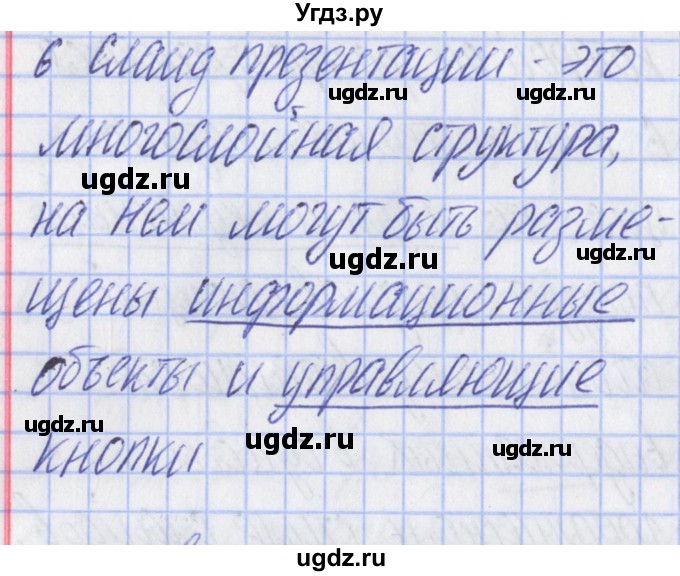 Угдз.ру
6 Слайд презентации - это
ugdz.ru ugdz.ru
многослойная структура,
ugdz.ru
на нем могут быть разме-
ugdz.ru ugdz.ru
щены информационные
объекты и управляющие
ugdz.ru ugdz.ru ugdz.ru
кнопки
ugdz.ru